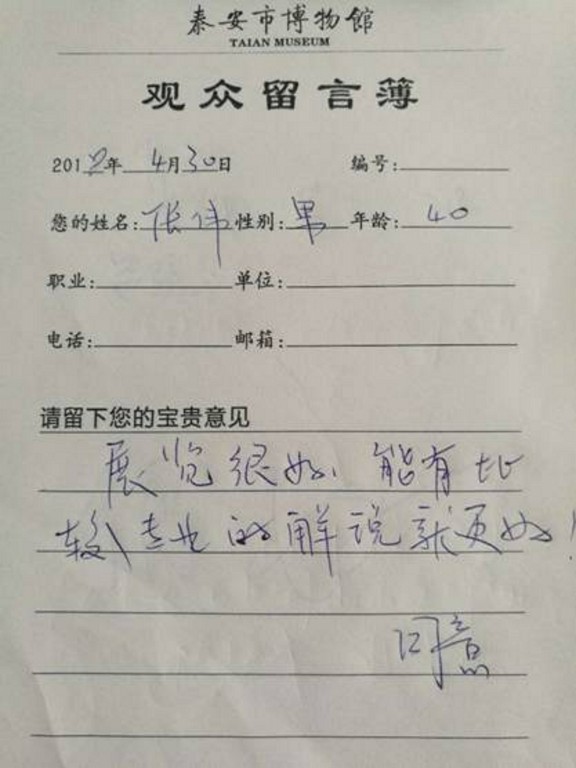 泰安市博物馆
TAIAN MUSEUM
观众留言簿
201 年 4月30日 编号:
您的姓名:张伟 性别:男 年龄:40
职业: 单位:
电话: 邮箱:
请留下您的宝贵意见
展览很好 能有比
较专业的解说就更好!
同意